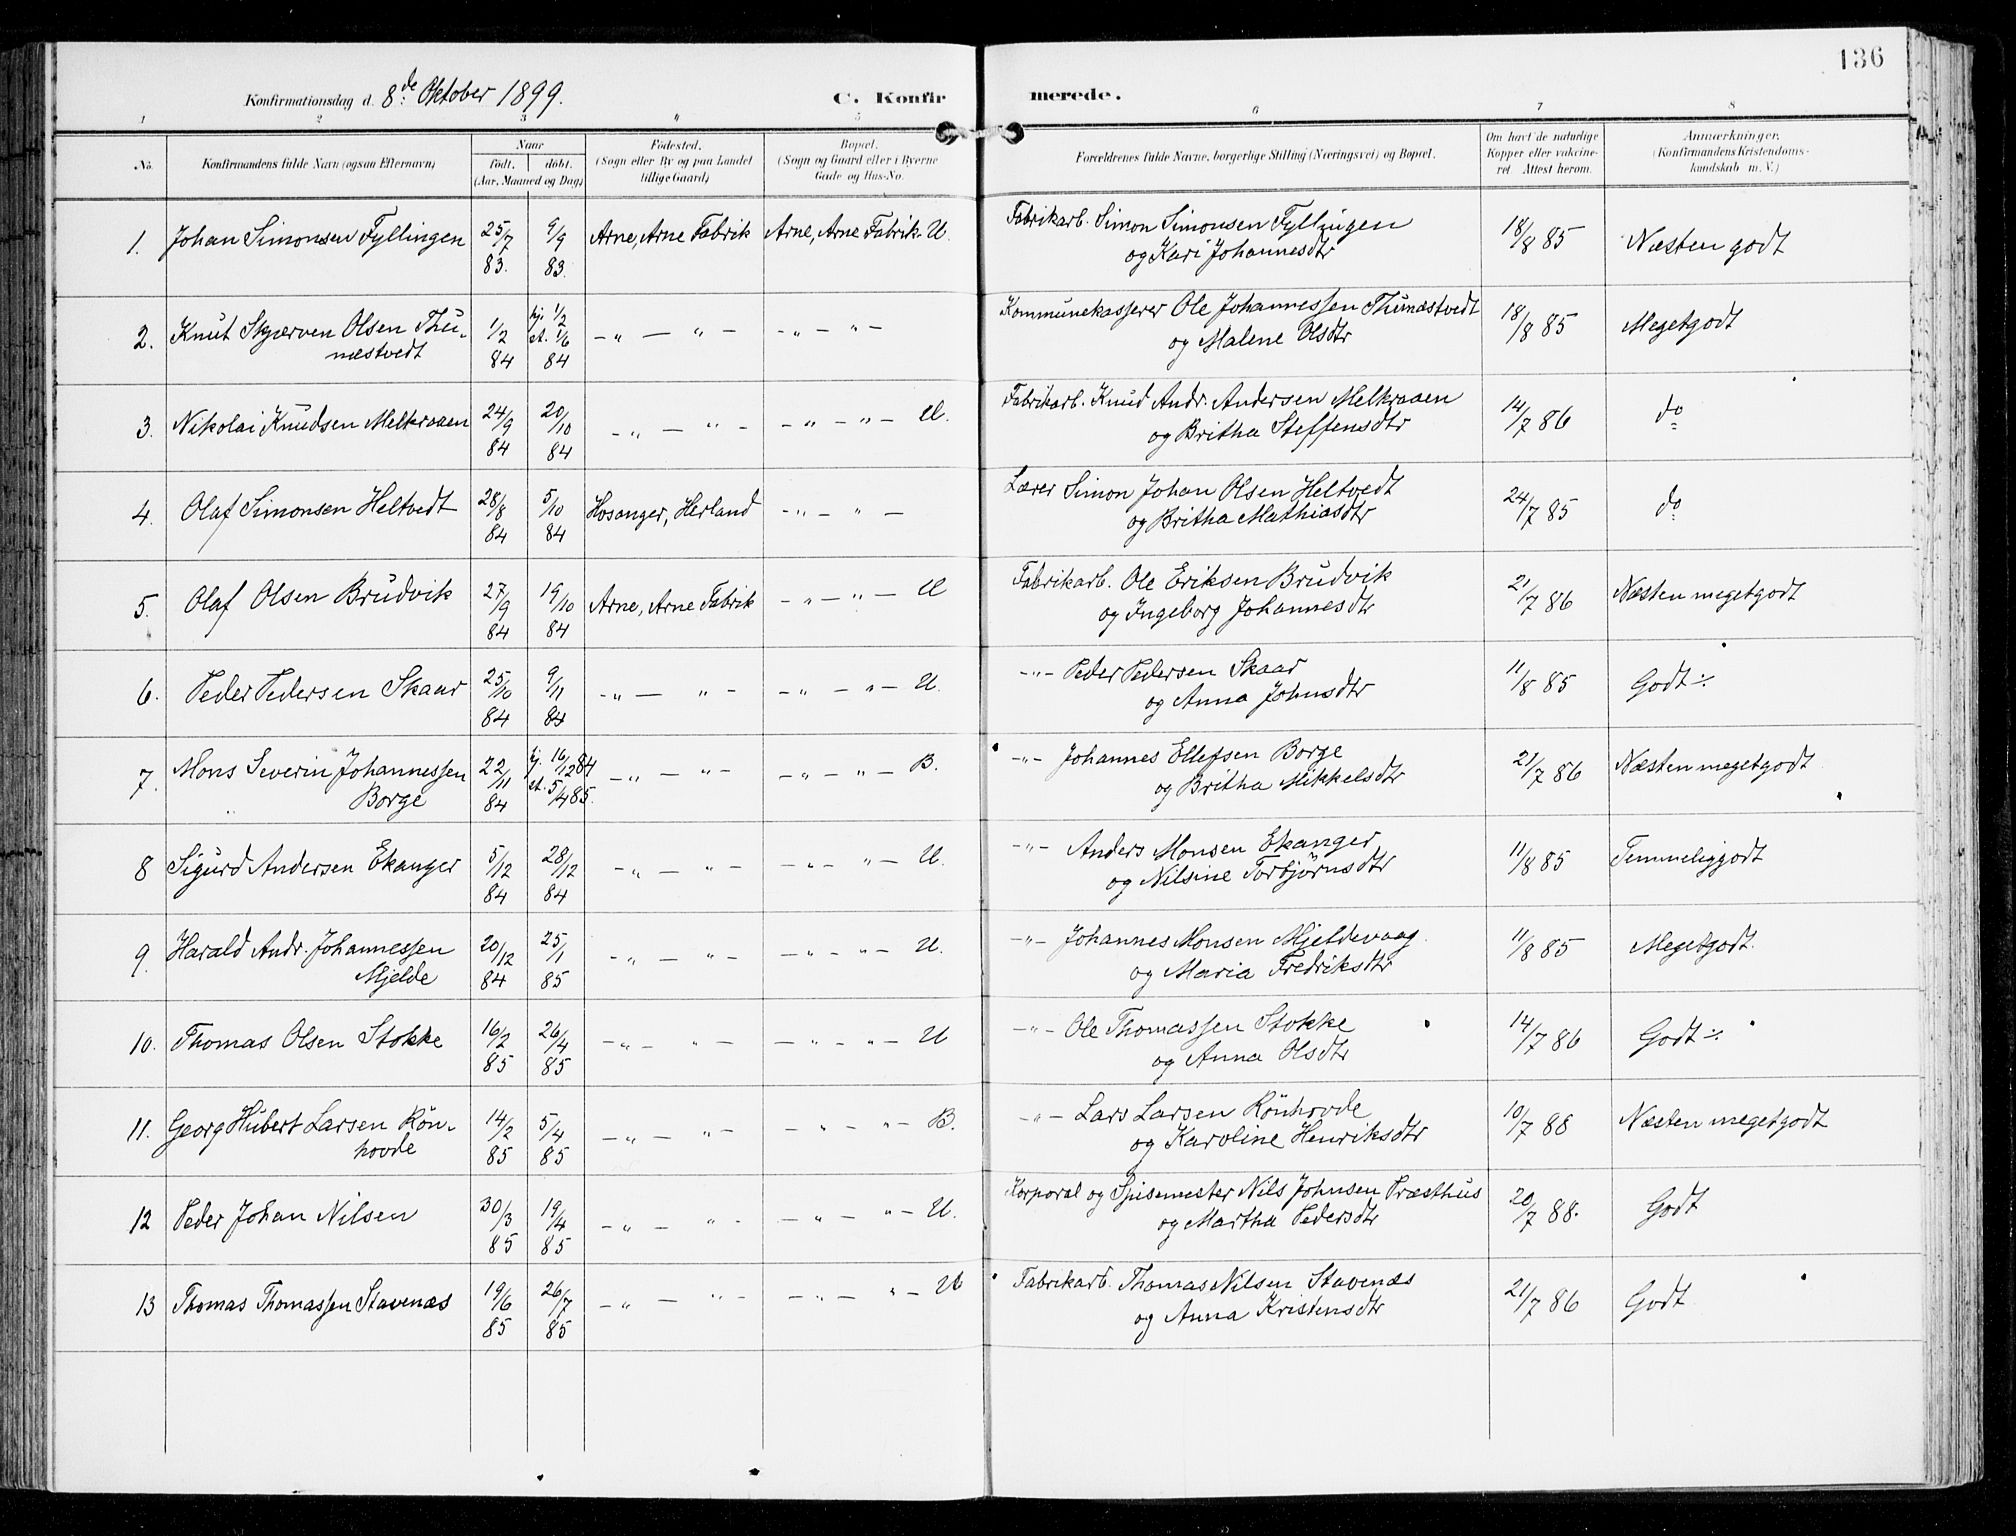 136
Konfirmationsdag d. 8de Oktober 1899. C. Konfirmerede.
1 2 3 4 5 6 7 8
No. Konfirmandens fulde Navn (ogsaa Efternavn) Naar født, døbt. (Aar, Maaned og Dag) Fødested. (Sogn eller By og paa Landet tillige Gaard) Bopæl. (Sogn og Gaard eller i Byerne Gade og Hus-No. Forældrenes fulde Navne, borgerlige Stilling (Næringsvei) og Bopæl. Om havt de naturlige Kopper eller vaccineret. Attest herom. Anmærkninger. (Konfirmandens Kristendomskundskab m. V.)
1. Johan Simonsen Fyllingen 25/7 83. 9/9 83. Arne, Arne Fabrik Arne, Arne Fabrik. U. Fabrikarb. Simon Simonsen Fyllingen og Kari Johannesdtr 18/8 85 Næsten godt
2. Knut Skjærven Olsen Thunæstvedt 1/2 84 hj. 1/2 st. 1/6 84 -"- "- -"- "- Kommunekasserer Ole Johannessen Thunæstvedt og Malene Olsdtr 18/8 85 Megetgodt
3. Nikolai Knudsen Melkraaen 24/9 84 20/10 84 -"- "- -"- "- U. Fabrikarb. Knud Andr. Andersen Melkraaen og Britha Steffensdtr 14/7 86 do
4. Olaf Simonsen Heltvedt 28/8 84 5/10 84 Hosanger, Herland -"- "- Lærer Simon Johan Olsen Heltvedt og Britha Mathiasdtr 24/7 85 do
5. Olaf Olsen Brudvik 27/9 84 19/10 84 Arne, Arne Fabrik -"- "- U Fabrikarb. Ole Eriksen Brudvik og Ingeborg Johannesdtr 21/7 86 Næsten megetgodt
6. Peder Pedersen Skaar 25/10 84 9/11 84 -"- "- -"- "- U. -"- Peder Pedersen Skaar og Anna Johnsdtr 11/8 85 Godt ÷
7. Mons Severin Johannessen Borge 22/11 84 hj. 16/12 84 st. 5/4 85. -"- "- -"- "- B. -"- Johannes Ellefsen Borge og Britha Mikkelsdtr 21/7 86 Næsten megetgodt
8 Sigurd Andersen Ekanger 5/12 84 28/12 84 -"- "- -"- "- U. -"- Anders Monsen Ekanger og Nilsine Torbjørnsdtr 11/8 85 Temmeliggodt
9. Harald Andr. Johannessen Mjelde 20/12 84 25/1 85 -"- "- -"- "- U. -"- Johannes Monsen Mjeldevaag. og Maria Fredriksdtr 11/8 85 Megetgodt.
10. Thomas Olsen Stokke 16/2 85 26/4 85 -"- "- -"- "- U -"- Ole Thomassen Stokke og Anna Olsdtr 14/7 86 Godt ÷
11. Georg Hubert Larsen Rönhovde 14/2 85 5/4 85 -"- "- -"- "- B. -"- Lars Larsen Rönhovde og Karoline Henriksdtr 10/7 88 Næsten megetgodt
12 Peder Johan Nilsen 30/3 85 19/4 85 -"- "- -"- "- U. Korporal og Spisemester Nils Johnsen Præsthus og Martha Pedersdtr 20/7 88. Godt
13 Thomas Thomassen Stavenæs 19/6 85 26/7 85 -"- "- -"- "- U Fabrikarb. Thomas Nilsen Stavenæs og Anna Kristensdtr 21/7 86 Godt